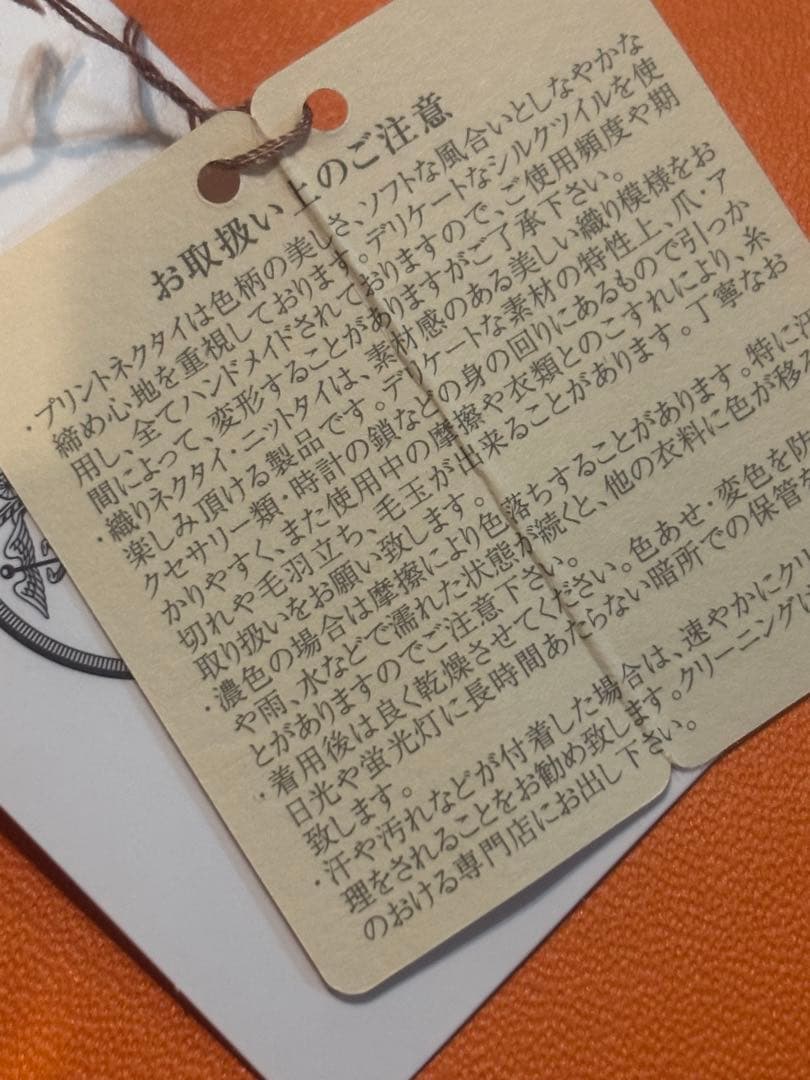 お取扱い上のご注意
・プリントネクタイは色柄の美しさ、ソフトな風合いとしなやかな
締め心地を重視しております。デリケートなシルクツイルを使
用し、全てハンドメイドされておりますので、ご使用頻度や期
間によって、変形することがありますがご了承下さい。
・織りネクタイ・ニットタイは、素材感のある美しい織り模様をお
楽しみ頂ける製品です。デリケートな素材の特性上、爪・ア
クセサリー類・時計の鎖などの身の回りにあるもので引っか
かりやすく、また使用中の摩擦や衣類とのこすれにより、糸
切れや毛羽立ち、毛玉が出来ることがあります。丁寧なお
取り扱いをお願い致します。
・濃色の場合は摩擦により色落ちすることがあります。特に汗
や雨、水などで濡れた状態が続くと、他の衣料に色が移
とがありますのでご注意下さい。
・着用後は良く乾燥させてください。色あせ・変色を防
日光や蛍光灯に長時間あたらない暗所での保管を
致します。
・汗や汚れなどが付着した場合は、速やかにクリ
理をされることをお勧め致します。クリーニングに
のおける専門店にお出し下さい。